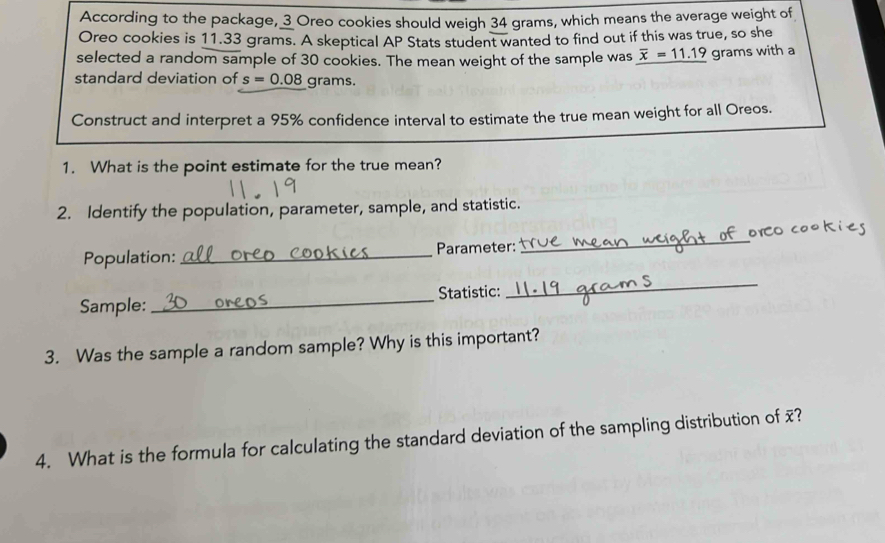 According to the package, 3 Oreo cookies should weigh 34 grams, which means the average weight of
Oreo cookies is 11.33 grams. A skeptical AP Stats student wanted to find out if this was true, so she
selected a random sample of 30 cookies. The mean weight of the sample was x̄ = 11.19 grams with a
standard deviation of s = 0.08 grams.
Construct and interpret a 95% confidence interval to estimate the true mean weight for all Oreos.
1. What is the point estimate for the true mean?
11.19
2. Identify the population, parameter, sample, and statistic.
Population: all oreo cookies Parameter: true mean weight of oreo cookies
Sample: 30 oreos Statistic: 11.19 grams
3. Was the sample a random sample? Why is this important?
4. What is the formula for calculating the standard deviation of the sampling distribution of x̄?